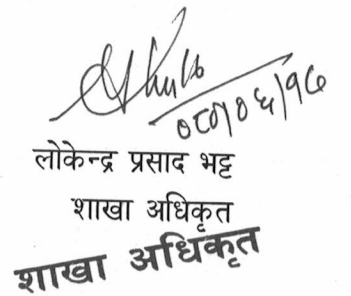 ०८१।०६।१७
लोकेन्द्र प्रसाद भट्ट
शाखा अधिकृत
शाखा अधिकृत